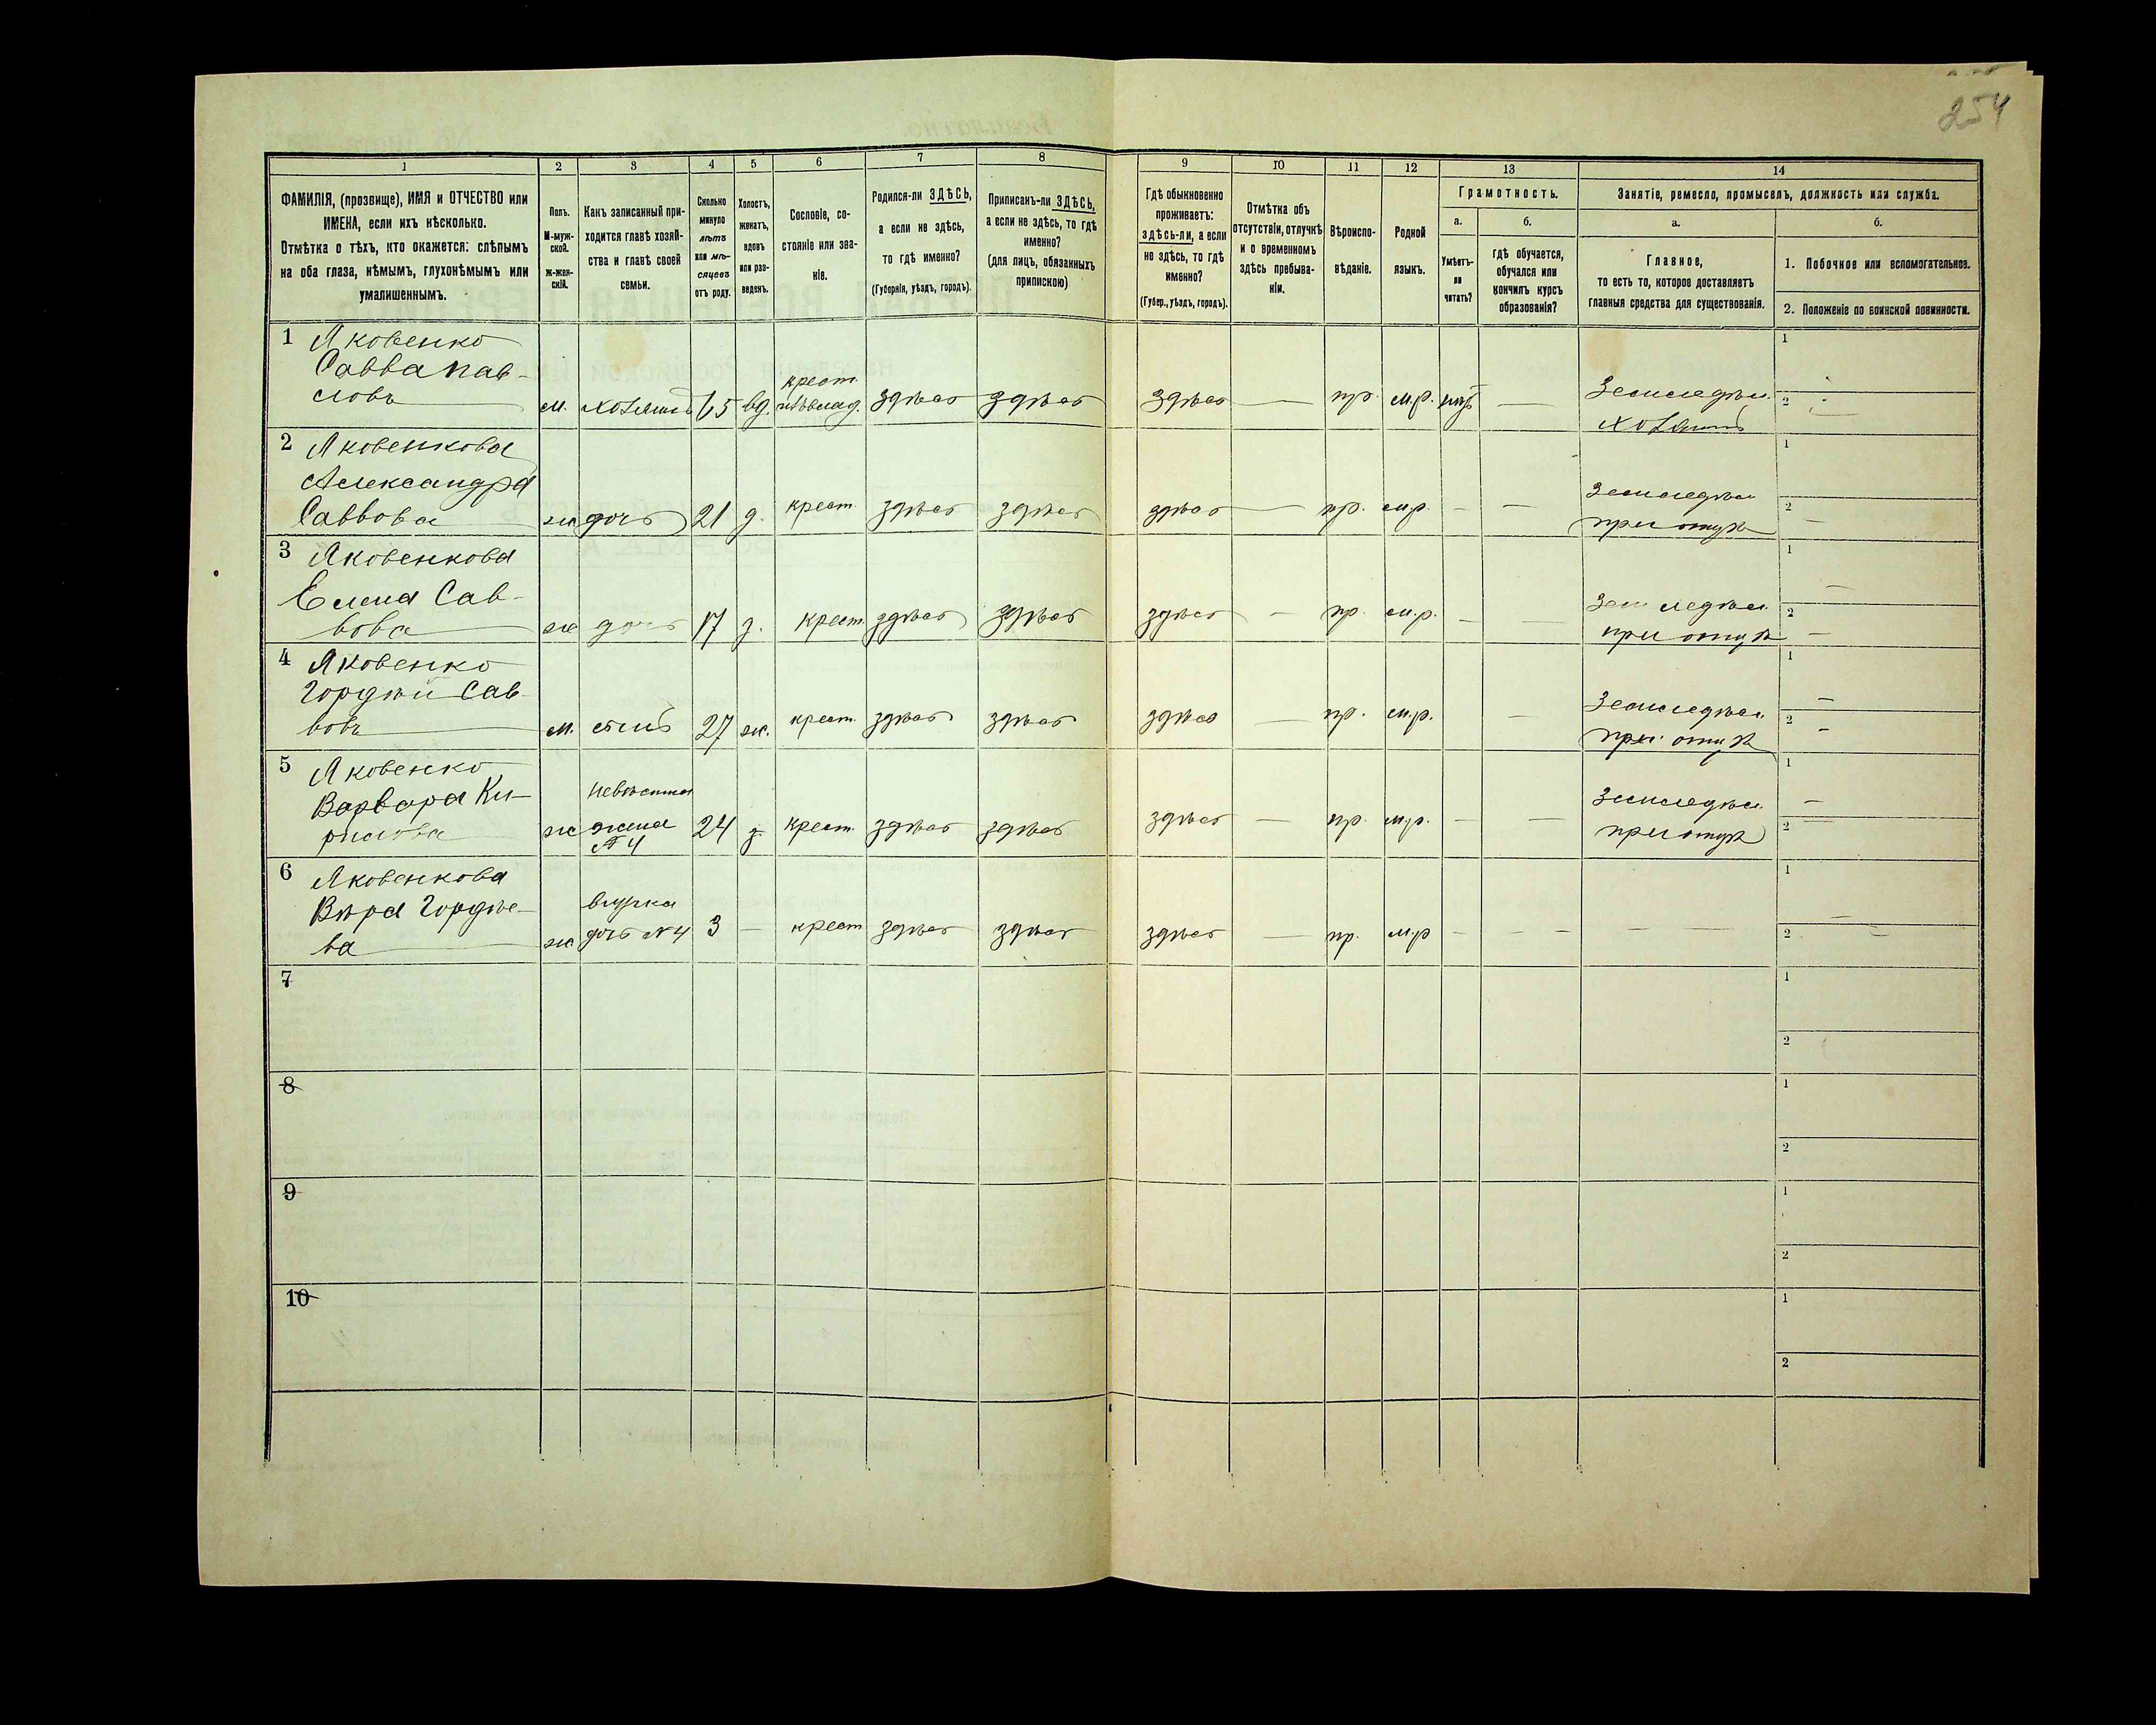 254
1 2 3 4 5 6 7 8 9 10 11 12 13 14
ФАМИЛІЯ, (прозвище), ИМЯ и ОТЧЕСТВО или
ИМЕНА, если ихъ нѣсколько.
Отмѣтка о тѣхъ, кто окажется: слѣпымъ
на оба глаза, нѣмымъ, глухонѣмымъ или
умалишеннымъ.
Полъ.
М-муж-
ской.
Ж-жен-
скій.
Какъ записанный при-
ходится главѣ хозяй-
ства и главѣ своей
семьи.
Сколько
минуло
лѣтъ
или мѣ-
сяцевъ
отъ роду.
Холостъ,
женатъ,
вдовъ
или раз-
веденъ.
Сословіе, со-
стояніе или зва-
ніе.
Родился-ли ЗДѢСЬ,
а если не здѣсь,
то гдѣ именно?
(Губернія, уѣздъ, городъ).
Приписанъ-ли ЗДѢСЬ,
а если не здѣсь, то гдѣ
именно?
(для лицъ, обязанныхъ
припискою)
Гдѣ обыкновенно
проживаетъ:
здѣсь-ли, а если
не здѣсь, то гдѣ
именно?
(Губер., уѣздъ, городъ).
Отмѣтка объ
отсутствіи, отлучкѣ
и о временномъ
здѣсь пребыва-
ніи.
Вѣроиспо-
вѣданіе.
Родной
языкъ.
Грамотность.
а.
Умѣетъ-
ли
читать?
б.
гдѣ обучается,
обучался или
кончилъ курсъ
образованія?
Занятіе, ремесло, промыселъ, должность или служба.
а.
Главное,
то есть то, которое доставляетъ
главныя средства для существованія.
б.
1. Побочное или вспомогательное.
2. Положеніе по воинской повинности.
1 Яковенко
Савва Пав-
ловъ
м. хозяинъ 65 вд.
крест.
здѣсь здѣсь здѣсь — пр. м.р. —
Земледѣл.
хозяинъ
1
2
2 Яковенкова
Александра
Саввова
ж дочь 21 д. крест. здѣсь здѣсь здѣсь — пр. м.р. — —
Земледѣл.
при отцѣ
1
2 —
3 Яковенкова
Елена Сав-
вова
ж дочь 17 д. крест. здѣсь здѣсь здѣсь — пр. м.р. — —
Земледѣл.
при отцѣ
1 —
2 —
4 Яковенко
Гордѣй Сав-
вовъ
м. сынъ 27 ж. крест. здѣсь здѣсь здѣсь — пр. м.р. —
Земледѣл.
при отцѣ
1 —
2 —
5 Яковенко
Варвара Ки-
рилова
ж
невѣстка
жена
№ 4
24 з. крест. здѣсь здѣсь здѣсь — пр. м.р. — —
Земледѣл.
при отцѣ
1 —
2 —
6 Яковенкова
Вѣра Гордѣе-
ва
ж
внучка
дочь № 4
3 — крест. здѣсь здѣсь здѣсь — пр. м.р — — — — —
1 —
2 —
7
1
2
8
1
2
9
1
2
10
1
2